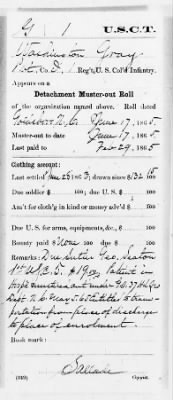 G 1 U.S.C.T.
Washington Gray
Pvt., Co. D, 1 Reg't, U. S. Col'd Infantry.
Appears on a
Detachment Muster-out Roll
of the organization named above. Roll dated
Goldsboro N.C. June 17, 1865.
Muster-out to date June 17, 1865
Last paid to Feb 29, 1865
Clothing account:
Last settled 186 ; drawn since $ 100
Due soldier $ 100; due U. S. $ 100
Am't for cloth'g in kind or money adv'd $ 100
Due U. S. for arms, equipments, &c., $ 100
Bounty paid $ none 100; due $ 100
Remarks: Due Sutler Geo. Seaton
1st U.S.C.T. $19
Dept. N.C. May entitled to trans-
portation from place of discharge
to place of enrolment.
Book mark:
(359) Copyist.